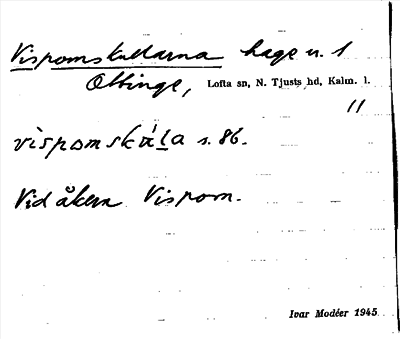 Vispomskullarna hage n. 1
Ottinge, Lofta sn, N. Tjusts hd, Kalm. l.
11
s. 86.
Vid åkern Vispom.
Ivar Modéer 1945